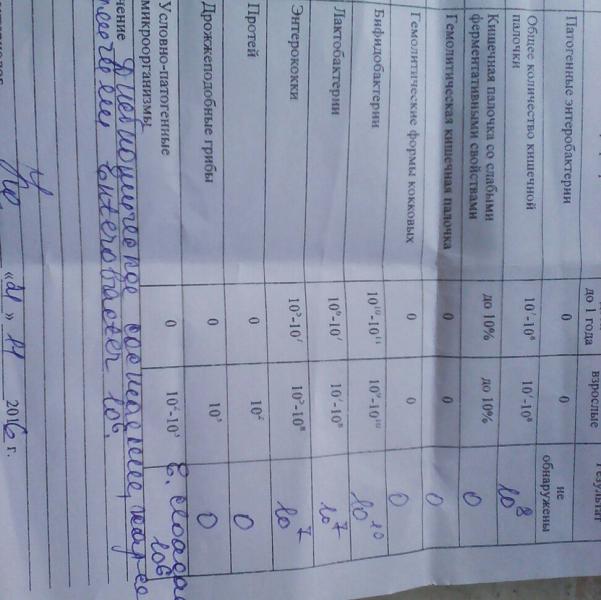 до 1 года взрослые Результат
Патогенные энтеробактерии 0 0 не обнаружены
Общее количество кишечной палочки 10⁷-10⁸ 10⁷-10⁸ 10⁸
Кишечная палочка со слабыми ферментативными свойствами до 10% до 10% 0
Гемолитическая кишечная палочка 0 0 0
Гемолитические формы кокковых 0 0 0
Бифидобактерии 10¹⁰-10¹¹ 10⁹-10¹⁰ 10¹⁰
Лактобактерии 10⁷ 10⁷-10⁸ 10⁷
Энтерококки 10⁵-10⁷ 10⁵-10⁸ 10⁷
Протей 0 10² 0
Дрожжеподобные грибы 0 10³ 0
Условно-патогенные микроорганизмы 0 10²-10³ E. cloacae 10⁶
чение Дисбиотическое состояние,
enterobacter 10⁶.
«21» 11 2016 г.